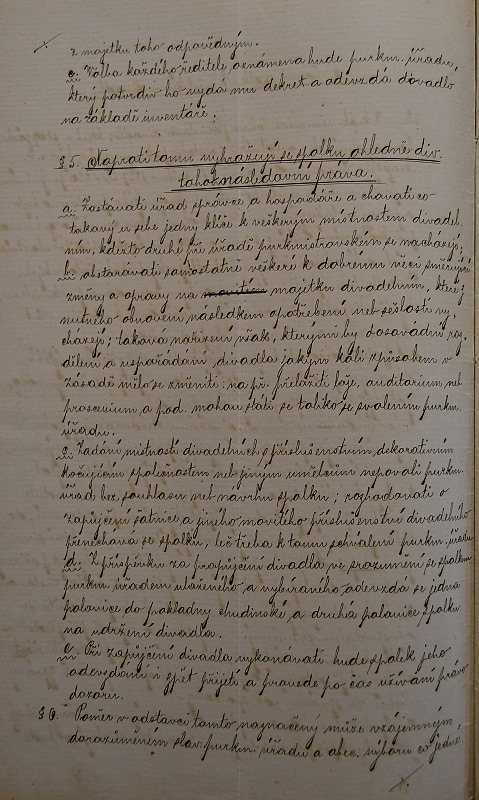 z majetku toho odpovědným.
e. Volba každého ředitele oznámena bude purkm. úřadu,
který potvrdiv ho vydá mu dekret a odevzdá divadlo
na základě inventáře.
§ 5. Naproti tomu vyhražují se spolku ohledně div.
tohoto následovní práva.
a. Zastávati úřad správce a hospodáře a chovati co
takový u sebe jedny klíče k veškerým místnostem divadel.
ním, kdežto druhé při úřadě purkmistrovském se nacházejí;
b. obstarávati samostatně veškeré k dobrému věci směřující
změny a opravy na movitém majetku divadelním, které
nutného obnovení následkem opotřebení neb sešlosti vy.
cházejí; taková nařízení však, kterými by dosavádní roz.
dělení a uspořádání divadla jakým koli způsobem v
zásadě mělo se změniti: na př. přeložiti lóže, auditorium neb
proscenium a pod. mohou státi se toliko se svolením purkm.
úřadu.
c. Zadání místností divadelních s příslušenstvím, dekorativním
kočujícím společnostem neb jiným umělcům nepovolí purkm.
úřad bez souhlasu neb návrhu spolku; rozhodovati o
zapůjčení šatnice a jiného movitého příslušenství divadelního
přenechává se spolku, leč třeba k tomu schválení purkm. úřadu
d. Z příspěvku za propůjčení divadla ve srozumění se spolkem
purkm. úřadem uloženého a vybíraného odevzdá se jedna
polovice do pokladny chudinské a druhá polovice spolku
na udržení divadla.
e. Při zapůjčení divadla vykonávati bude spolek jeho
odevzdání i zpět přijetí a provede po čas užívání právo
dozoru.
§ 6. Poměr v odstavci tomto naznačený může vzájemným
dorozuměním slav. purkm. úřadu a obec. výboru co jedné